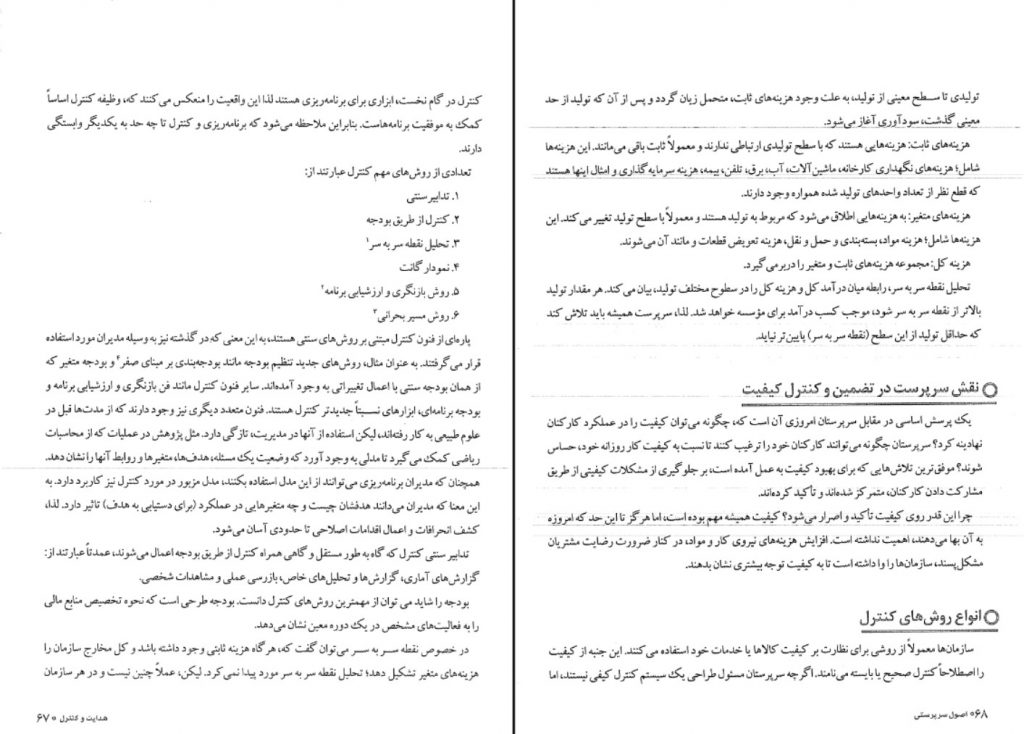 کنترل در گام نخست، ابزاری برای برنامه‌ریزی هستند لذا این واقعیت را منعکس می‌کنند که، وظیفه کنترل اساساً
کمک به موفقیت برنامه‌هاست. بنابراین ملاحظه می‌شود که برنامه‌ریزی و کنترل تا چه حد به یکدیگر وابستگی
دارند.
تعدادی از روش‌های مهم کنترل عبارتند از:
۱. تدابیر سنتی
۲. کنترل از طریق بودجه
۳. تحلیل نقطه سر به سر۱
۴. نمودار گانت
۵. روش بازنگری و ارزشیابی برنامه۲
۶. روش مسیر بحرانی۳
پاره‌ای از فنون کنترل مبتنی بر روش‌های سنتی هستند، به این معنی که در گذشته نیز به وسیله مدیران مورد استفاده
قرار می‌گرفتند. به عنوان مثال، روش‌های جدید تنظیم بودجه مانند بودجه‌بندی بر مبنای صفر۴ و بودجه متغیر که
از همان بودجه سنتی با اعمال تغییراتی به وجود آمده‌اند. سایر فنون کنترل مانند فن بازنگری و ارزشیابی برنامه و
بودجه برنامه‌ای، ابزارهای نسبتاً جدیدتر کنترل هستند. فنون متعدد دیگری نیز وجود دارند که از مدت‌ها قبل در
علوم طبیعی به کار رفته‌اند، لیکن استفاده از آنها در مدیریت، تازگی دارد. مثل پژوهش در عملیات که از محاسبات
ریاضی کمک می‌گیرد تا مدلی به وجود آورد که وضعیت یک مسئله، هدف‌ها، متغیرها و روابط آنها را نشان دهد.
همچنان که مدیران برنامه‌ریزی می‌توانند از این مدل استفاده بکنند، مدل مزبور در مورد کنترل نیز کاربرد دارد. به
این معنا که مدیران می‌دانند هدفشان چیست و چه متغیرهایی در عملکرد (برای دستیابی به هدف) تاثیر دارد. لذا،
کشف انحرافات و اعمال اقدامات اصلاحی تا حدودی آسان می‌شود.
تدابیر سنتی کنترل که گاه به طور مستقل و گاهی همراه کنترل از طریق بودجه اعمال می‌شوند، عمدتاً عبارتند از:
گزارش‌های آماری، گزارش‌ها و تحلیل‌های خاص، بازرسی عملی و مشاهدات شخصی.
بودجه را شاید می توان از مهمترین روش‌های کنترل دانست. بودجه طرحی است که نحوه تخصیص منابع مالی
را به فعالیت‌های مشخص در یک دوره معین نشان می‌دهد.
در خصوص نقطه سر به سر می‌توان گفت که، هرگاه هزینه ثابتی وجود داشته باشد و کل مخارج سازمان را
هزینه‌های متغیر تشکیل دهد؛ تحلیل نقطه سر به سر مورد پیدا نمی‌کرد. لیکن، عملاً چنین نیست و در هر سازمان
هدایت و کنترل ○ ۶۷
تولیدی تا سطح معینی از تولید، به علت وجود هزینه‌های ثابت، متحمل زیان گردد و پس از آن که تولید از حد
معینی گذشت، سودآوری آغاز می‌شود.
هزینه‌های ثابت: هزینه‌هایی هستند که با سطح تولیدی ارتباطی ندارند و معمولاً ثابت باقی می‌مانند. این هزینه‌ها
شامل؛ هزینه‌های نگهداری کارخانه، ماشین‌آلات، آب، برق، تلفن، بیمه، هزینه سرمایه گذاری و امثال اینها هستند
که قطع نظر از تعداد واحدهای تولید شده همواره وجود دارند.
هزینه‌های متغیر: به هزینه‌هایی اطلاق می‌شود که مربوط به تولید هستند و معمولاً با سطح تولید تغییر می‌کند. این
هزینه‌ها شامل؛ هزینه مواد، بسته‌بندی و حمل و نقل، هزینه تعویض قطعات و مانند آن می‌شوند.
هزینه کل: مجموعه هزینه‌های ثابت و متغیر را دربرمی‌گیرد.
تحلیل نقطه سر به سر، رابطه میان درآمد کل و هزینه کل را در سطوح مختلف تولید، بیان می‌کند. هر مقدار تولید
بالاتر از نقطه سر به سر شود، موجب کسب درآمد برای مؤسسه خواهد شد. لذا، سرپرست همیشه باید تلاش کند
که حداقل تولید از این سطح (نقطه سر به سر) پایین‌تر نیاید.
○ نقش سرپرست در تضمین و کنترل کیفیت
یک پرسش اساسی در مقابل سرپرستان امروزی آن است که، چگونه می‌توان کیفیت را در عملکرد کارکنان
نهادینه کرد؟ سرپرستان چگونه می‌توانند کارکنان خود را ترغیب کنند تا نسبت به کیفیت کار روزانه خود، حساس
شوند؟ موفق‌ترین تلاش‌هایی که برای بهبود کیفیت به عمل آمده است، بر جلوگیری از مشکلات کیفیتی از طریق
مشارکت دادن کارکنان، متمرکز شده‌اند و تأکید کرده‌اند.
چرا این قدر روی کیفیت تأکید و اصرار می‌شود؟ کیفیت همیشه مهم بوده است، اما هرگز تا این حد که امروزه
به آن بها می‌دهند، اهمیت نداشته است. افزایش هزینه‌های نیروی کار و مواد، در کنار ضرورت رضایت مشتریان
مشکل‌پسند، سازمان‌ها را وا داشته است تا به کیفیت توجه بیشتری نشان بدهند.
○ انواع روش‌های کنترل
سازمان‌ها معمولاً از روشی برای نظارت بر کیفیت کالاها یا خدمات خود استفاده می‌کنند. این جنبه از کیفیت
را اصطلاحاً کنترل صحیح یا بایسته می‌نامند. اگرچه سرپرستان مسئول طراحی یک سیستم کنترل کیفی نیستند، اما
۶۸○ اصول سرپرستی